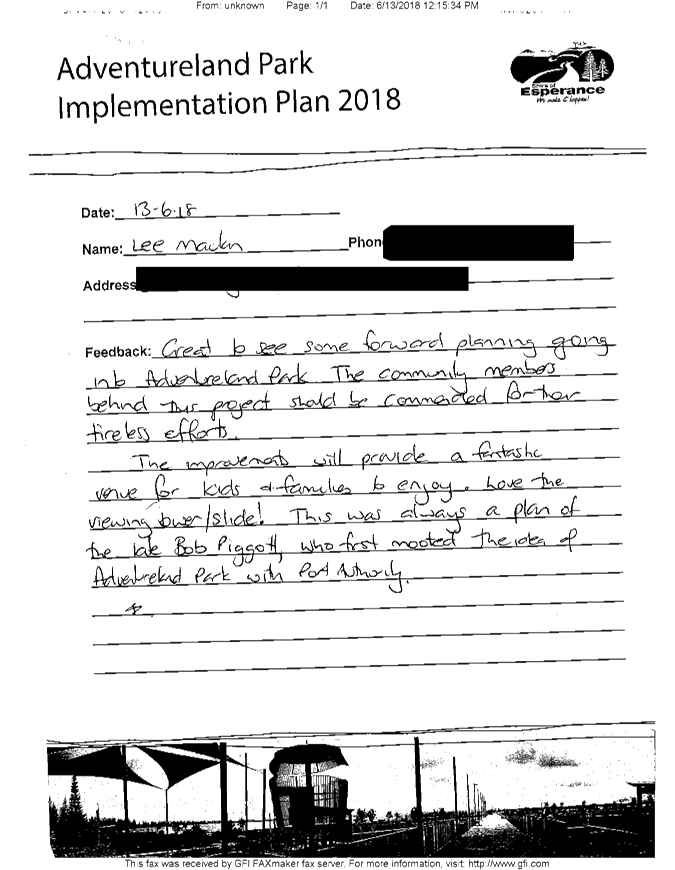 From: unknown Page: 1/1 Date: 6/13/2018 12:15:34 PM
Adventureland Park
Implementation Plan 2018
Shire of
Esperance
We make it happen!
Date: 13-6-18
Name: Lee Phon
Address
Feedback: Great to see some forward planning going
into Adventureland Park. The community members
behind this project should be commended for their
tireless efforts.
The improvements will provide a fantastic
venue for kids & families to enjoy. Love the
viewing tower/slide! This was always a plan of
the late Bob Piggott, who first mooted the idea of
Adventureland Park with Port Authority.
This fax was received by GFI FAXmaker fax server. For more information, visit: http://www.gfi.com